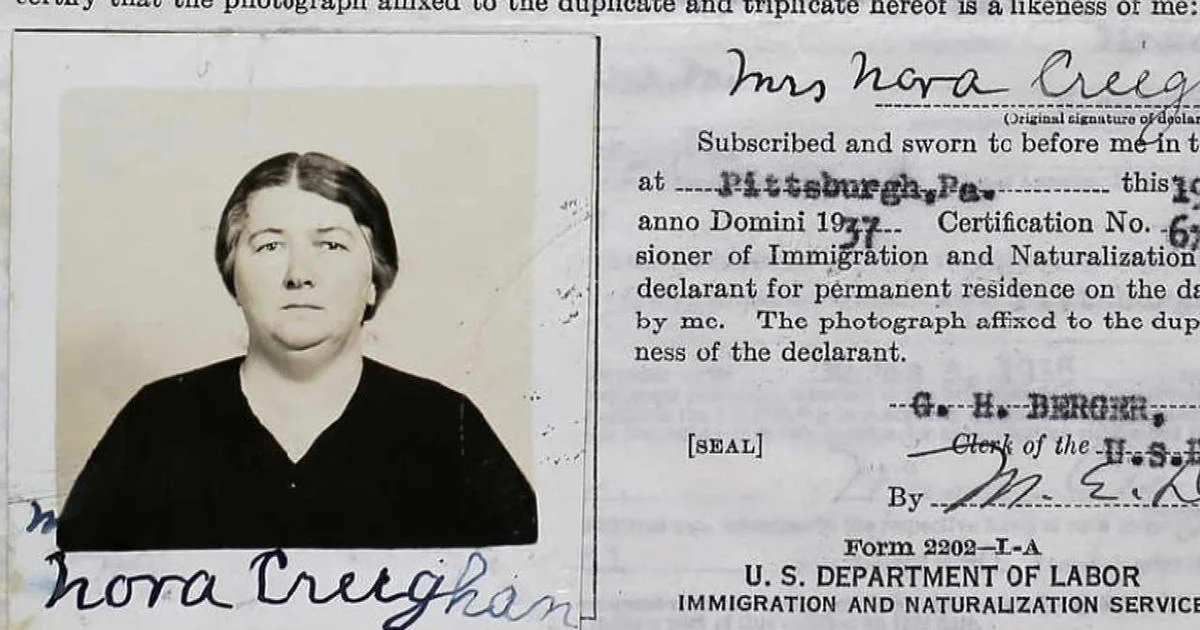 certify that the photograph affixed to the duplicate and triplicate hereof is a likeness of me:
Mrs Nora Creeg
(Original signature of declar
Subscribed and sworn to before me in t
at Pittsburgh, Pa. this 19
anno Domini 1937 Certification No. 6
sioner of Immigration and Naturalization
declarant for permanent residence on the da
by me. The photograph affixed to the dup
ness of the declarant.
G. H. BERGER,
[SEAL] Clerk of the U.S.
By M. E.
Form 2202—L-A
U. S. DEPARTMENT OF LABOR
IMMIGRATION AND NATURALIZATION SERVICE
Nora Creeghan